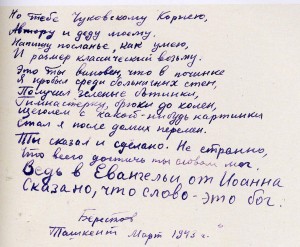 Но тебе Чуковскому Корнею,
Автору и деду моему.
Напишу посланье, как умею,
И размер классический возьму.
Это ты виновен, что в починке
Я пробыл среди больничных стен,
Получил зеленые ботинки,
Гимнастерку, брюки до колен,
Щеголем с какой-нибудь картинки
Стал я после долгих перемен.
Ты сказал и сделано. Не странно,
Что всего достичь ты словом мог.
Ведь в Евангельи от Иоанна
Сказано, что слово-это бог.
Берестов
Ташкент Март 1943 г.